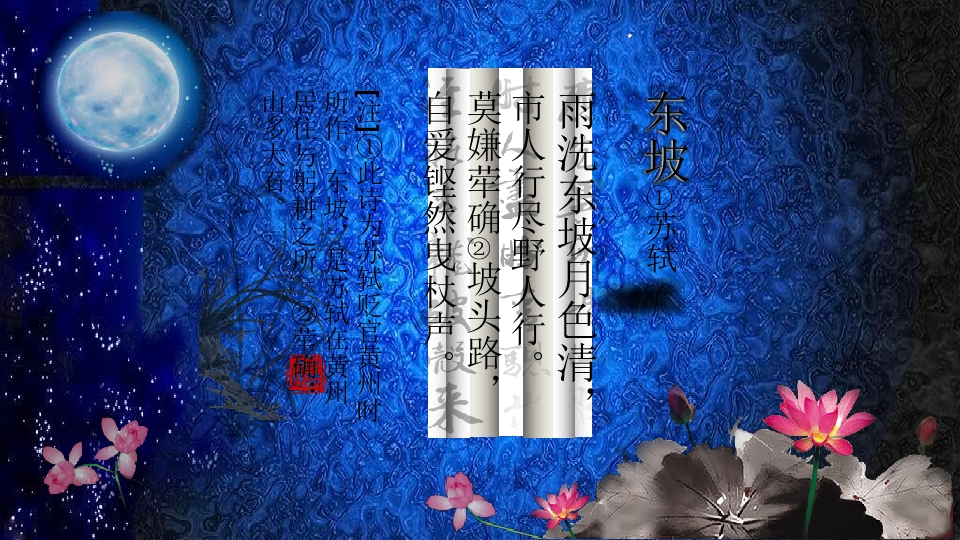 东坡①苏轼
雨洗东坡月色清，
市人行尽野人行。
莫嫌荦确②坡头路，
自爱铿然曳杖声。
【注】①此诗为苏轼贬官黄州时
所作。东坡，是苏轼在黄州
居住与躬耕之所。②荦确：
山多大石。